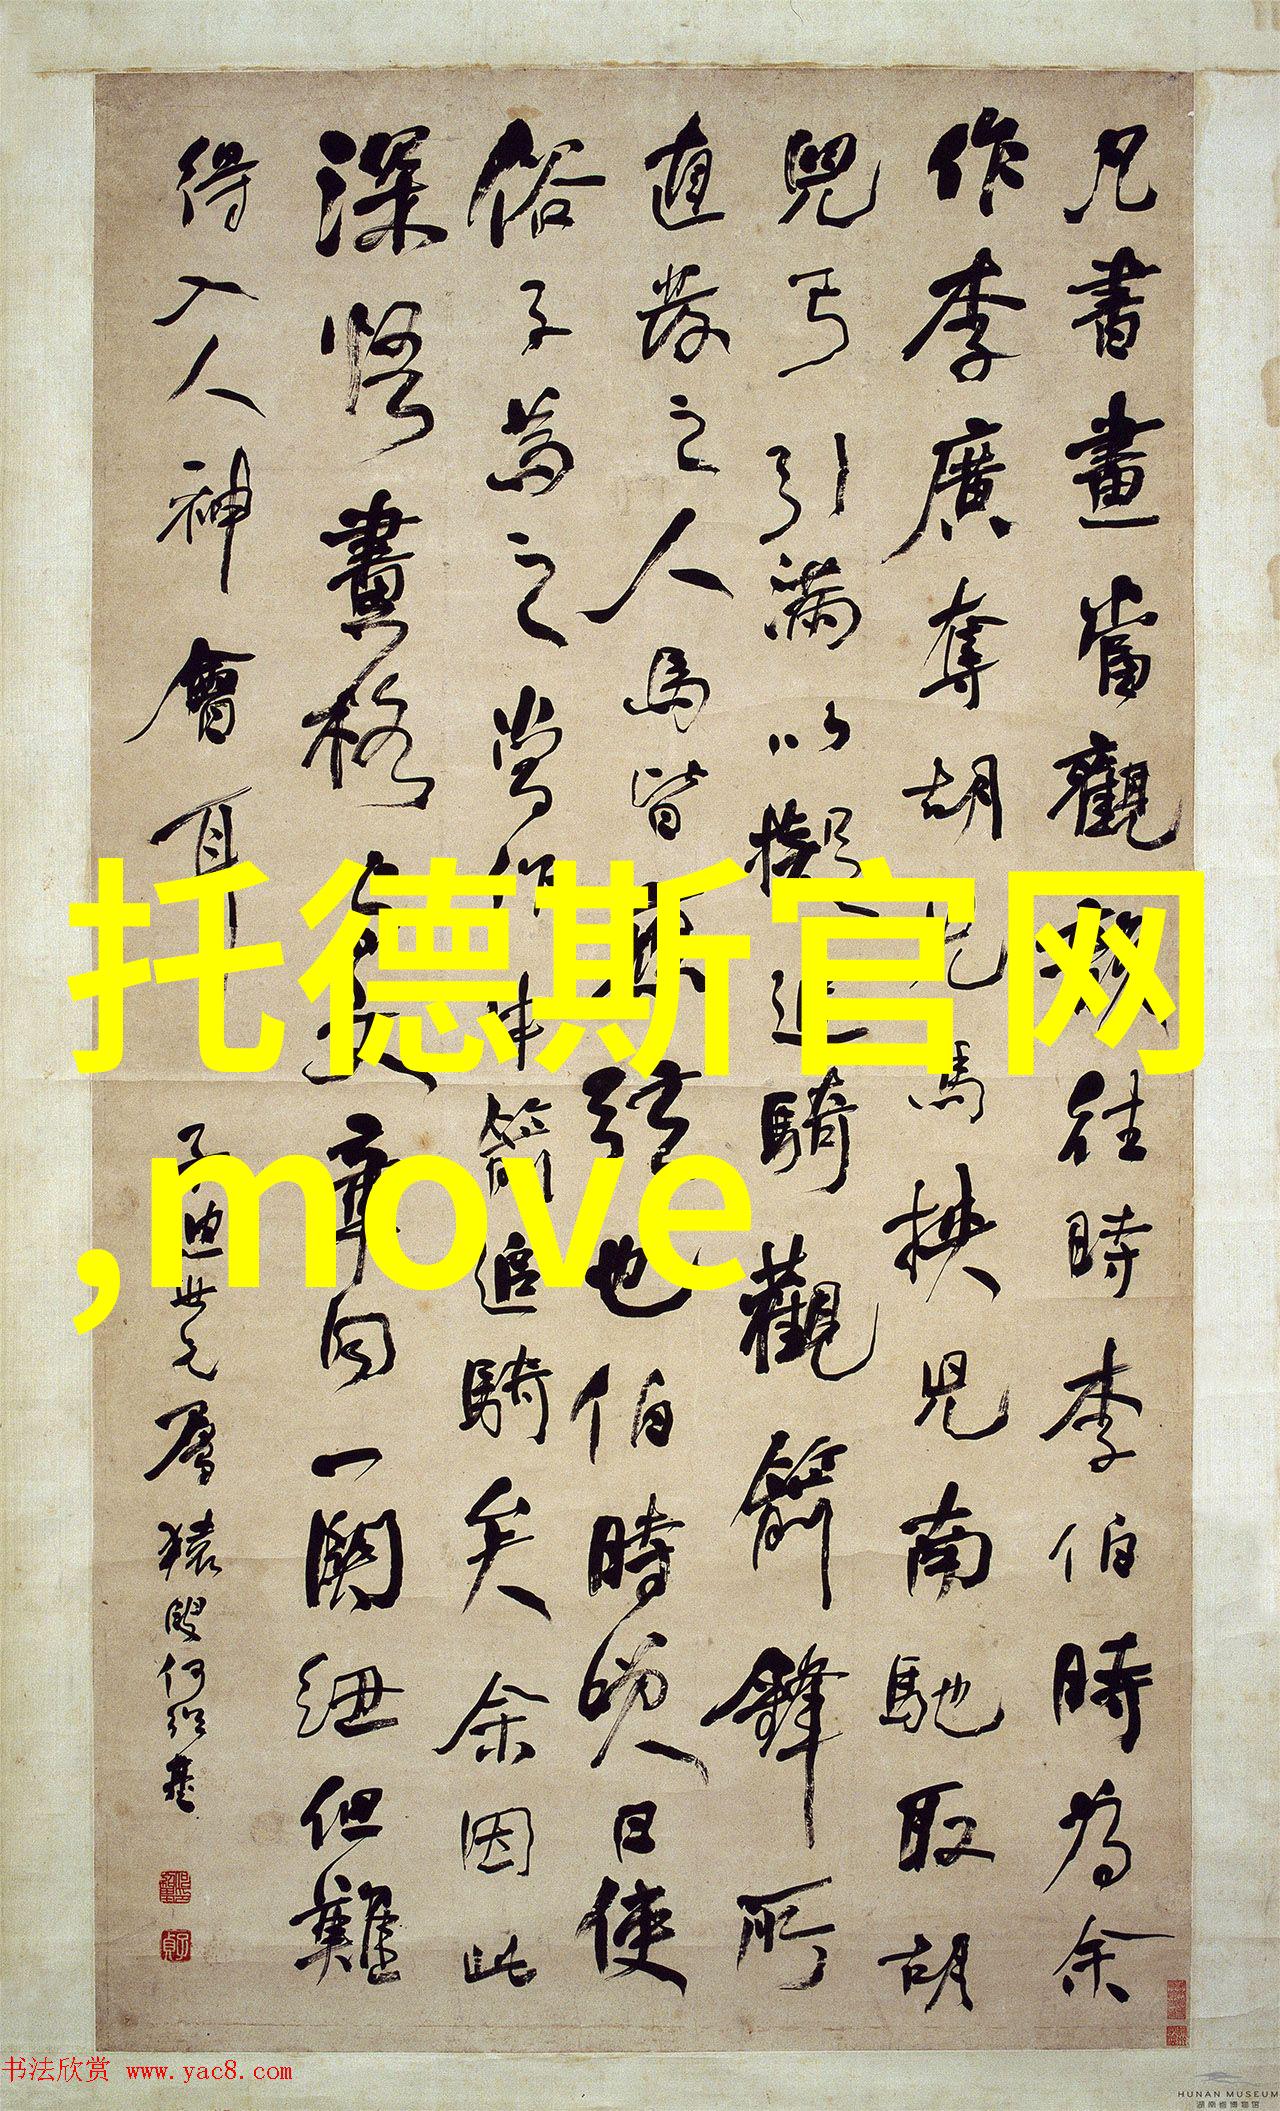 凡書畫當觀韻往時李伯時為余
作李廣奪胡兒馬挾兒南馳取胡
兒弓引滿以擬追騎觀箭鋒所
直發之人馬皆應弦也伯時笑曰使
俗子為之當作中箭追騎矣余因此
深悟畫格此與文章同一關紐但難
得入人神會耳 子迪世兄屬 猿叟何紹基
托德斯官网
,move
书法欣赏 www.yac8.com
HUNAN MUSEUM
湖南省博物馆